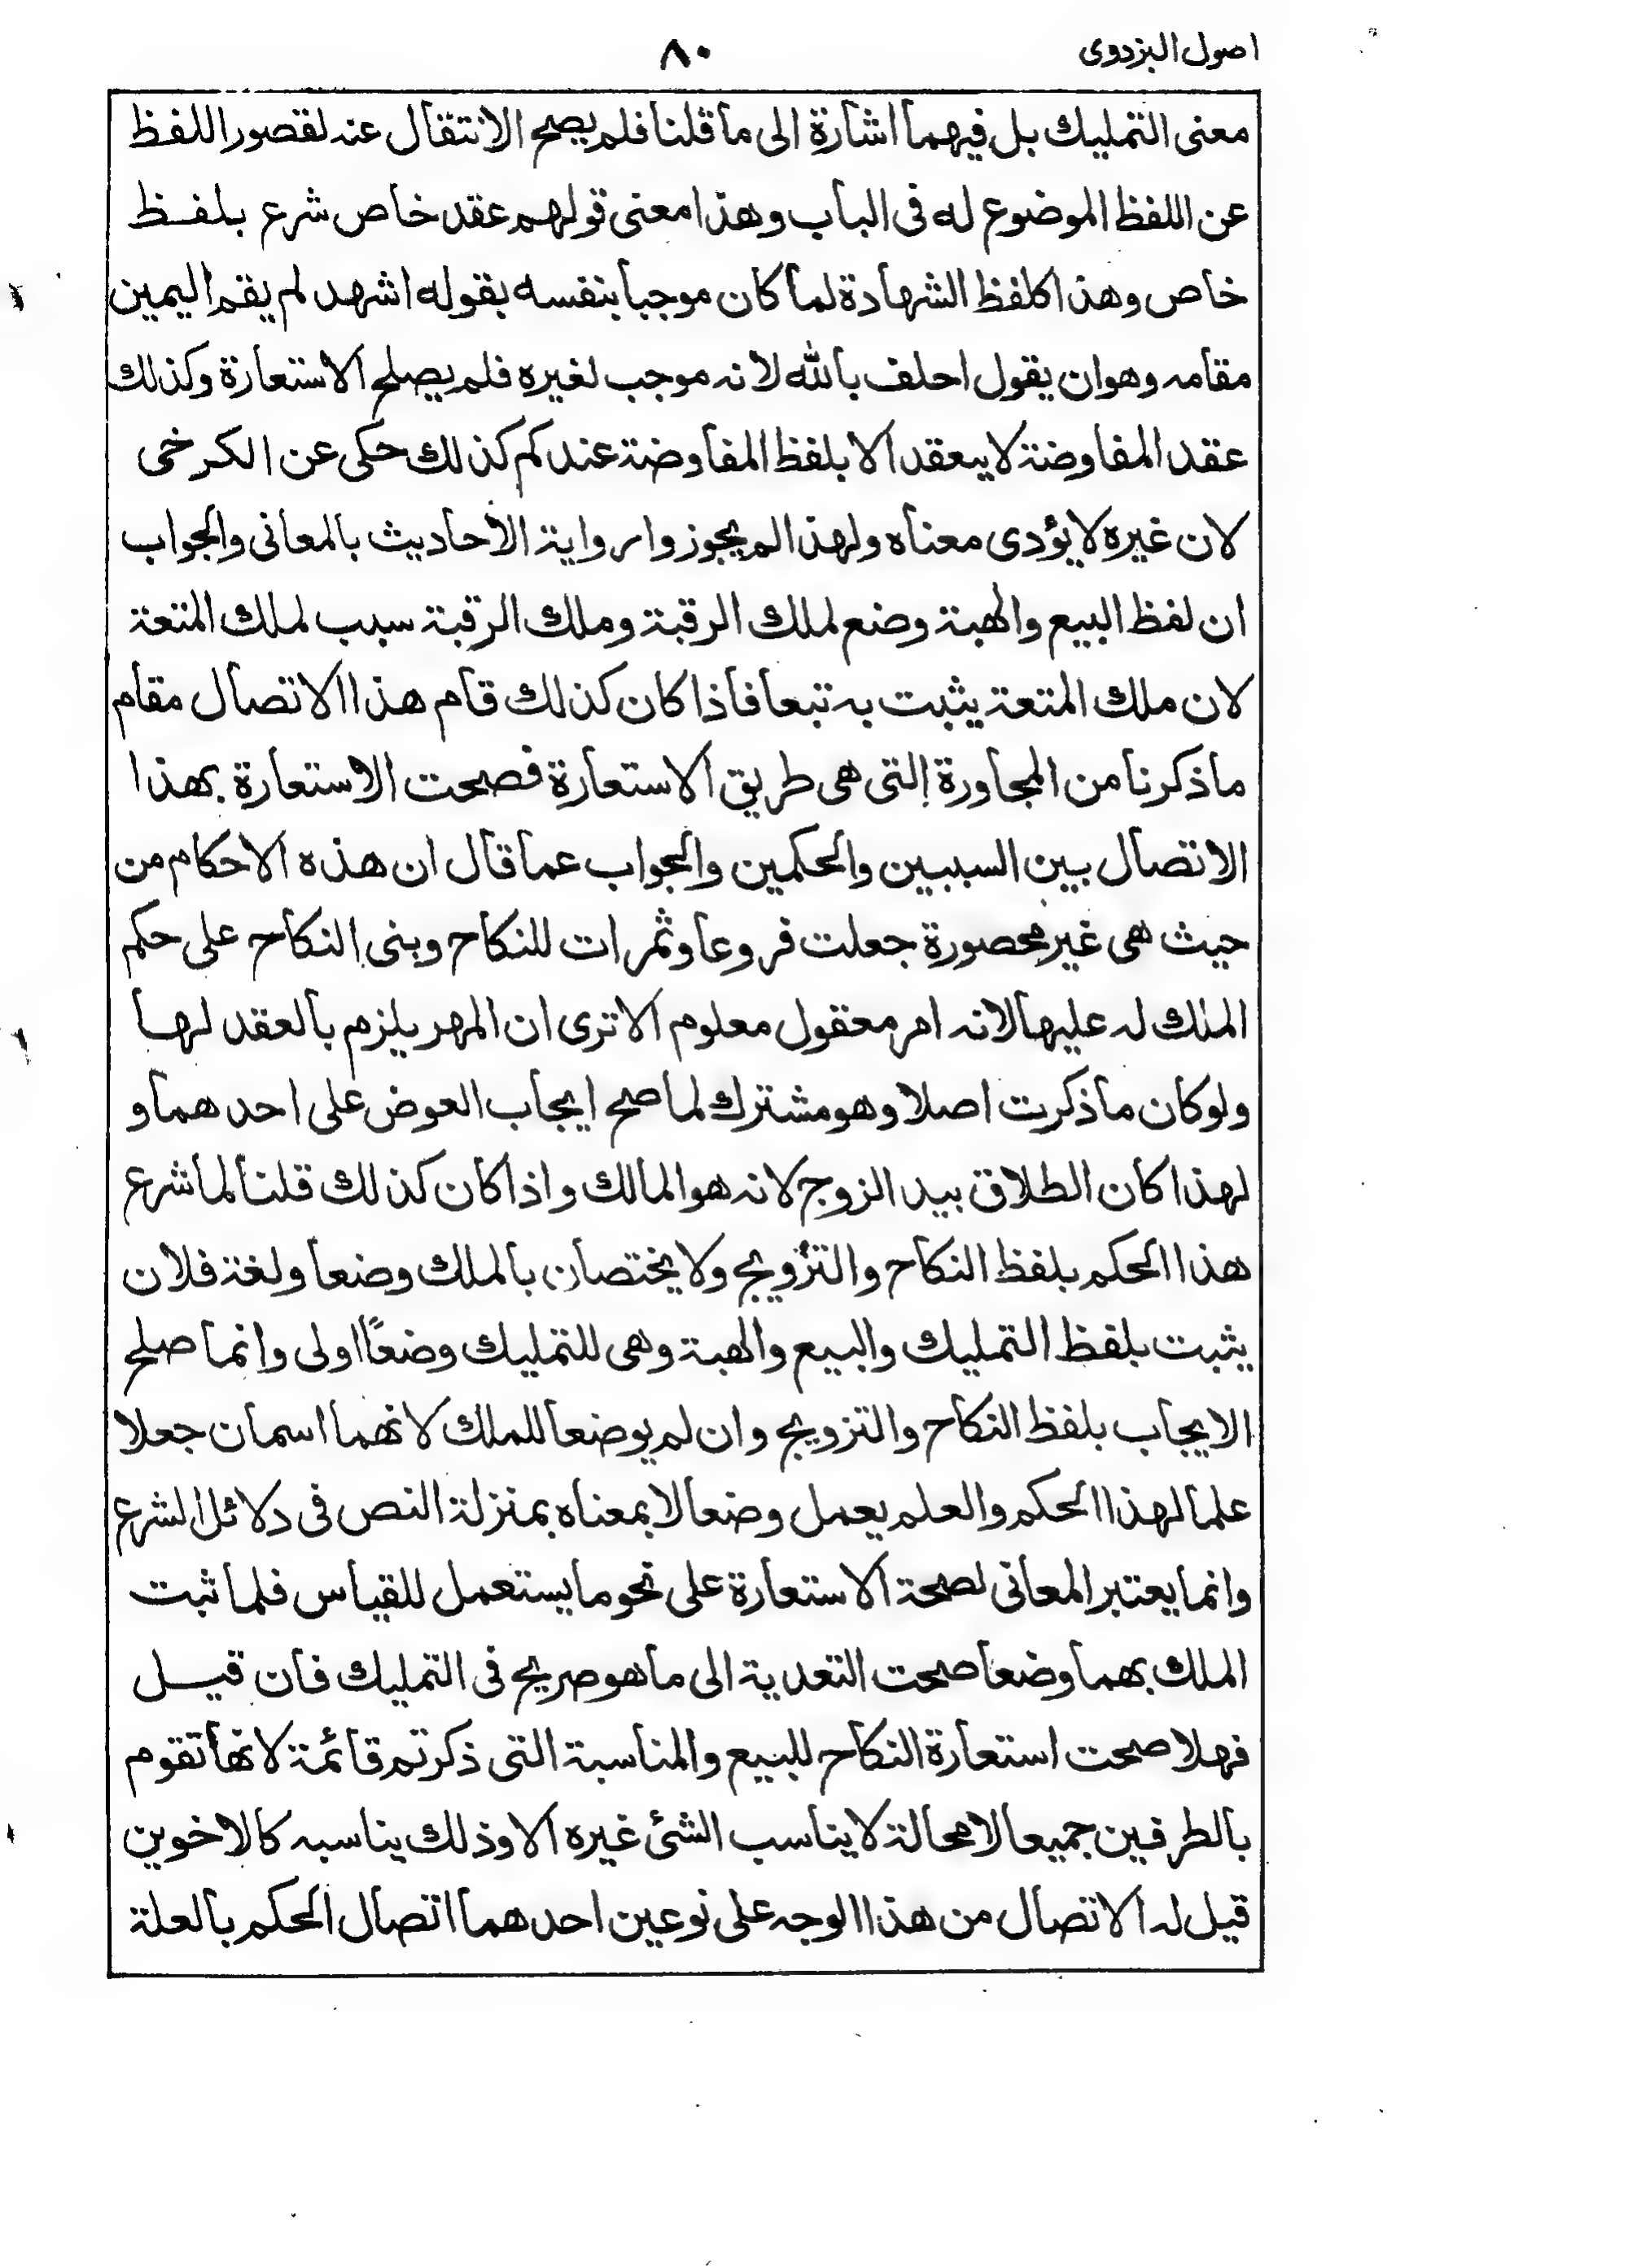 اصول البزدوى
٨٠
معنى التمليك بل فيهما اشارة الى ما قلنا فلم يصح الانتقال عنه لقصور اللفظ
عن اللفظ الموضوع له فى الباب وهذا معنى قولهم عقد خاص شرع بلفظ
خاص وهذا كلفظ الشهادة لما كان موجبا بنفسه بقوله اشهد لم يقم اليمين
مقامه وهو ان يقول احلف بالله لانه موجب لغيره فلم يصلح الاستعارة وكذلك
عقد المفاوضة لا ينعقد الا بلفظ المفاوضة عندكم كذلك حكى عن الكرخى
لان غيره لا يؤدى معناه ولهذا لم يجوزوا رواية الاحاديث بالمعانى والجواب
ان لفظ البيع والهبة وضع لملك الرقبة وملك الرقبة سبب لملك المتعة
لان ملك المتعة يثبت به تبعا فاذا كان كذلك قام هذا الاتصال مقام
ما ذكرنا من المجاورة التى هى طريق الاستعارة فصحت الاستعارة بهذا
الاتصال بين السببين والحكمين والجواب عما قال ان هذه الاحكام من
حيث هى غير محصورة جعلت فروعا وثمرات للنكاح وبنى النكاح على حكم
الملك له عليها لانه امر معقول معلوم الا ترى ان المهر يلزم بالعقد لها
ولو كان ما ذكرت اصلا وهو مشترك لما صح ايجاب العوض على احدهما و
لهذا كان الطلاق بيد الزوج لانه هو المالك واذا كان كذلك قلنا لما شرع
هذا الحكم بلفظ النكاح والتزويج ولا يختصان بالملك وضعا ولغة فلان
يثبت بلفظ التمليك والبيع والهبة وهى للتمليك وضعًا اولى وانما صلح
الايجاب بلفظ النكاح والتزويج وان لم يوضعا للملك لانهما اسمان جعلا
علما لهذا الحكم والعلم يعمل وضعا لا بمعناه بمنزلة النص فى دلائل الشرع
وانما يعتبر المعانى لصحة الاستعارة على نحو ما يستعمل للقياس فلما ثبت
الملك بهما وضعا صحت التعدية الى ما هو صريح فى التمليك فان قيل
فهلا صحت استعارة النكاح للبيع والمناسبة التى ذكرتم قائمة لانها تقوم
بالطرفين جميعا لا محالة لا يناسب الشئ غيره الا وذلك يناسبه كالاخوين
قيل له الاتصال من هذا الوجه على نوعين احدهما اتصال الحكم بالعلة